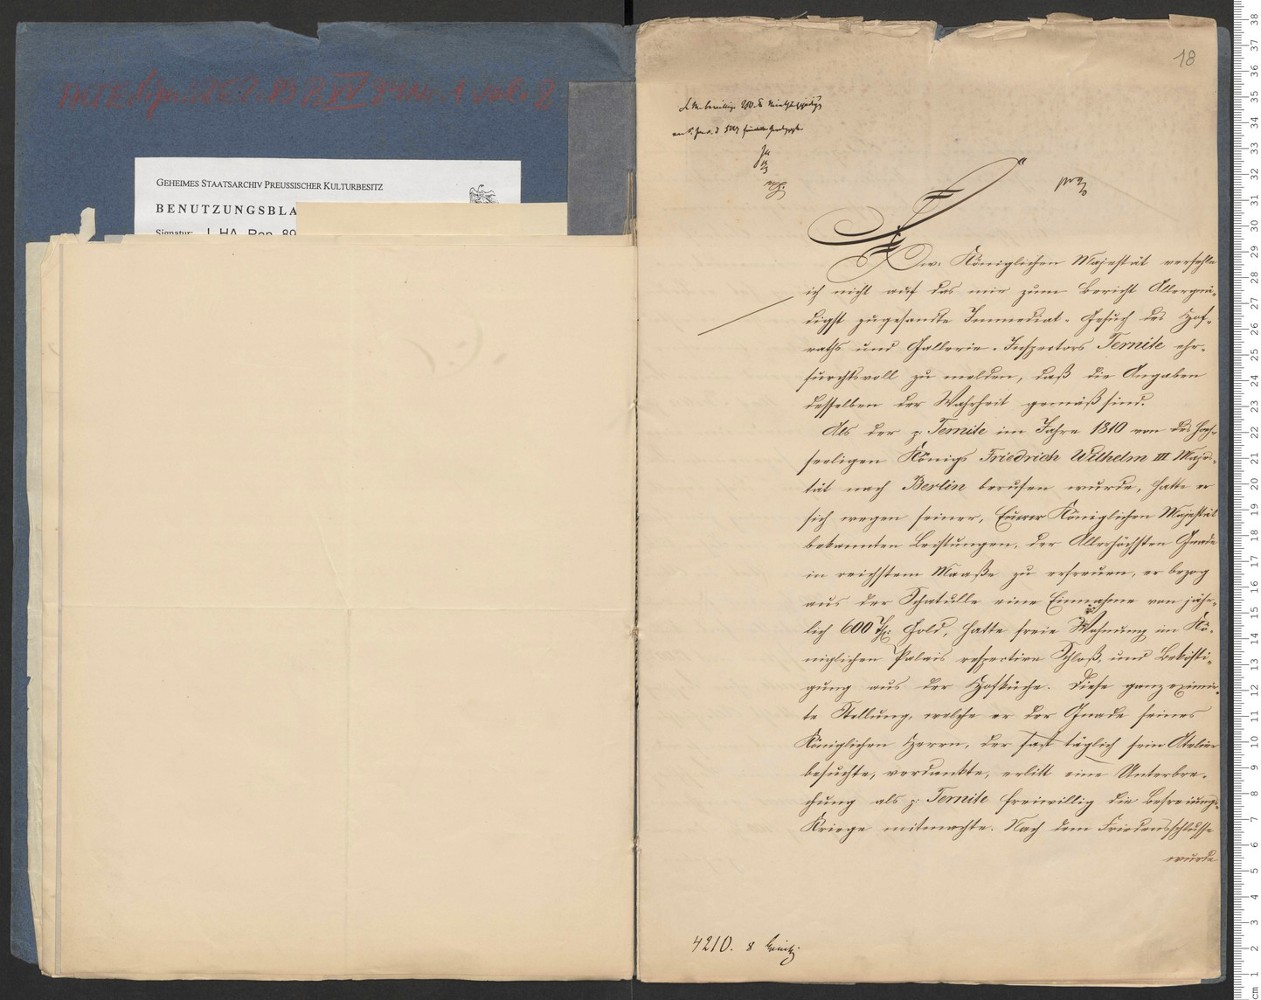 GEHEIMES STAATSARCHIV PREUSSISCHER KULTURBESITZ
BENUTZUNGSBLA
Signatur: I. HA Rep. 89
18
Ew. Königlichen Majestät verfehle
ich nicht auf das mir zum Bericht Allergnä-
digst zugesandte Immediat-Gesuch des Hof-
raths und Gallerie-Inspectors Ternite ehr-
furchtsvoll zu melden, daß die Angaben
desselben der Wahrheit gemäß sind.
Als der p. Ternite im Jahre 1810 von des Hoch-
seeligen Königs Friedrich Wilhelm III Majes-
tät nach Berlin berufen wurde, hatte er
sich wegen seiner, Euerer Königlichen Majestät
bekannten Leistungen, der Allerhöchsten Gnade
in reichstem Maaße zu erfreuen, er bezog
aus der Schatulle eine Einnahme von jähr-
lich 600 rt. Gold, hatte freie Wohnung im Kö-
niglichen Palais respective Schloß, und Bekösti-
gung aus der Hofküche. Diese ganz eximir-
te Stellung, welche er der Gnade seines
Königlichen Herrn, der fast täglich sein Atelier
besuchte, verdankte, erlitt eine Unterbre-
chung als p. Ternite freiwillig die Befreiungs-
Kriege mitmachte. Nach dem Friedensschlusse
wurde
4210.